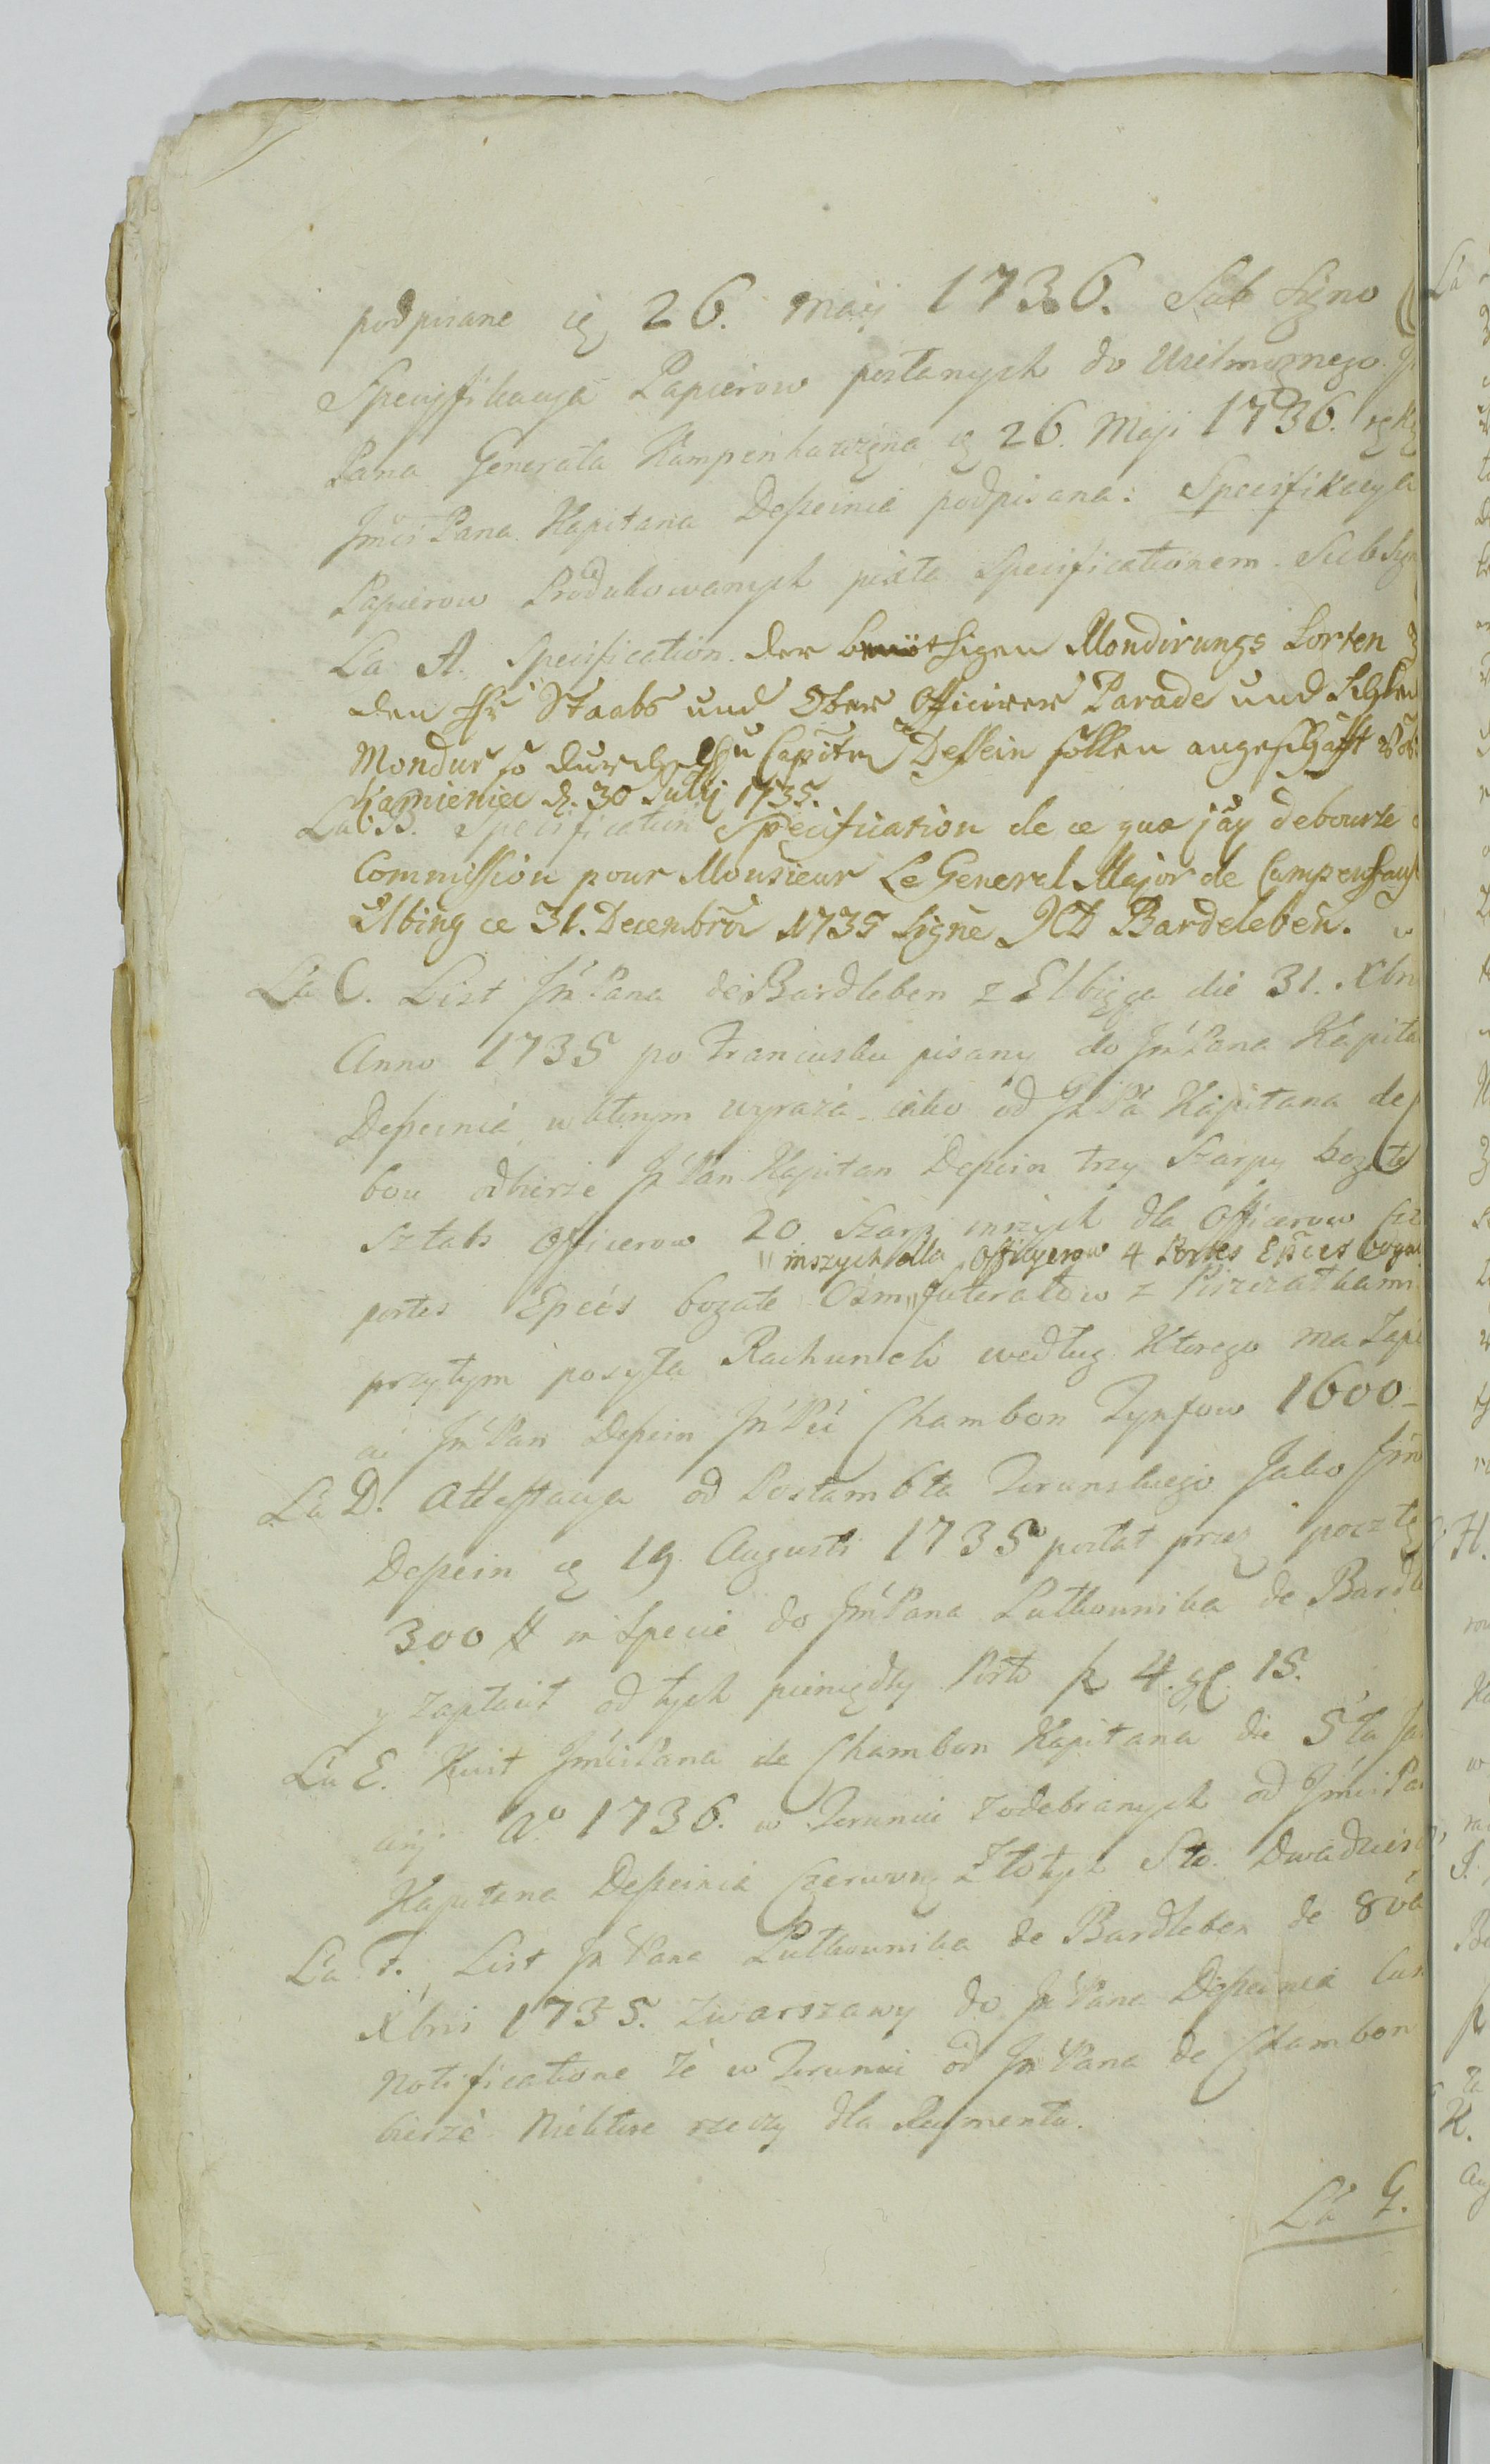 podpisane ię 26. Maij 1736. Sub Signo
Specyfikacya Papierow posłanych do Wielmożnego
Pana Generała Kampenhawzena ię 26. Maji 1736. ręką
Jmci Pana Kapitana Depeinia podpisana: Specifikacya
Papierow Produkowanych juxta Specificationem. Sub Sign
La A. Specification der benöthigen Mondirungs Sorten
den Staabs und Ober Officirer Parade und
Mondur so durch Capitn Dessein sollen angeschafft
Kamieniec d. 30 July 1735.
La B. Specification Specification de ce que j'ay debourse
Commission pour Monsieur Le General Major de Campenhaus
Elbing ce 31. Decembre 1735 Signe Bardeleben.
La C. List Jm Pana de Bardleben z Elbiga die 31. Xbri
Anno 1735 po Francusku pisany do Jm Pana Kapita
Depeinia w ktorym wyraza iako od Jm Pa Kapitana de
bon odbierze Jm Pan Kapitan Depein trzy Szarpy bogate
Sztabs Officerow 20 Szarp inszych dla Officerow
" inszych dla Officyerow 4 Portes Epees boga
portes Epées bogate Osm " futerałow z Pieczątkami
przytym posyła Rachunek według Ktorego ma Zapł
ci Jm Pan Depein Jm Pu Chambon Tynfow 1600
La D. Attestacya od Postambta Torunskiego Jako Jm
Depein ię 19 Augusti 1735 posłał przez pocztę
300 # in Specie do Jm Pana Pułkownika de Bardl
y zapłacił od tych pieniędzy Porto 4. 15.
La E. Kwit Jmci Pana de Chambon Kapitana die 5ta Ja
arij Ao 1736. w Toruniu z odebranych od Jmci Pa
Kapitana Depeinia Czerwony Złotych Sto Dwadziesc
La F. List Jm Pana Pułkownika de Bardleben de 8va
Xbris 1735. z Warszawy do Jm Pana Depeinia cum
notificatione że w Toruniu od Jm Pana de Chambon
bierze Niektore rzeczy dla Regimentu.
La G.